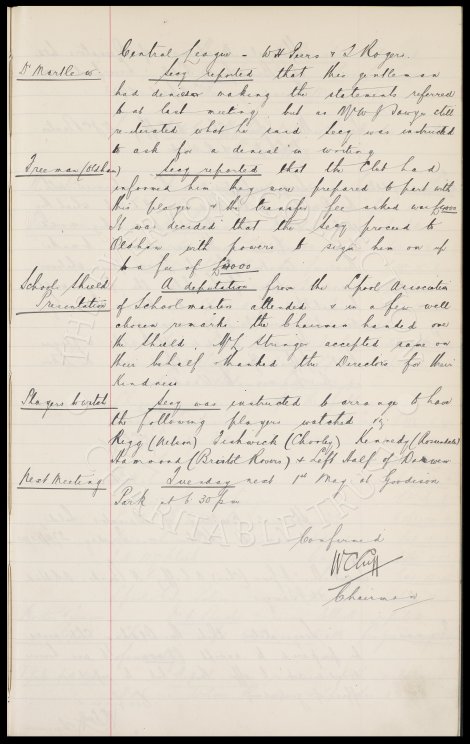 Central League - W H Peers & T Rogers.
Dr Martlew. Secy reported that this gentleman
had denied making the statements referred
to at last meeting but as Mr W J Sawyer still
reiterated what he said Secy was instructed
to ask for a denial in writing
Freeman (Oldham) Secy reported that the Club had
informed him they were prepared to part with
this player & the transfer fee asked was £4000
It was decided that the Secy proceed to
Oldham with powers to sign him on up
to a fee of £4000
Schools Shield A deputation from the Lpool Association
Presentation of Schoolmasters attended & in a few well
chosen remarks the Chairman handed over
the Shield. Mr Stranger accepted same on
their behalf thanked the Directors for their
Kindness
Players to watch Secy was instructed to arrange to have
the following players watched
Rigg (Nelson) Fishwick (Chorley) Kennedy (Rossendale)
Hammond (Bristol Rovers) & Left Half of Darwen
Next Meeting Tuesday next 1st May at Goodison
Park at 6.30 pm
Confirmed
W C Cuff
Chairman
CHARITABLE TRUST